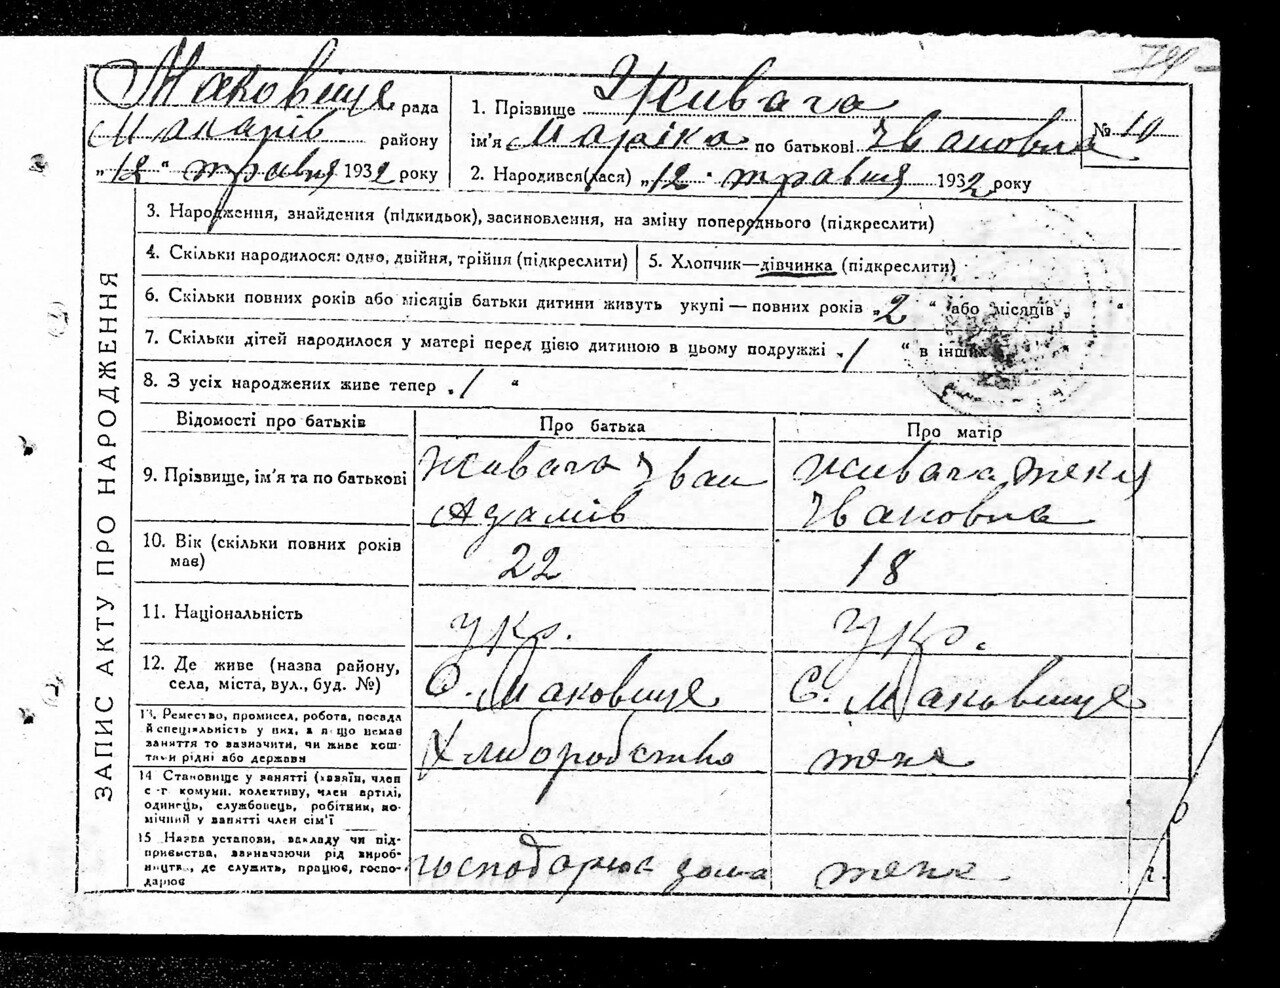 79
Маковище рада
Макарів району
„12“ травня 1932 року
1. Прізвище Живага
ім'я Маріка по батькові Івановна
№ 10
2. Народився(лася) „12“ травня 1932 року
ЗАПИС АКТУ ПРО НАРОДЖЕННЯ
3. Народження, знайдення (підкидьок), засиновлення, на зміну попереднього (підкреслити)
4. Скільки народилося: одно, двійня, трійня (підкреслити)
5. Хлопчик—дівчинка (підкреслити)
6. Скільки повних років або місяців батьки дитини живуть укупі — повних років „2“ або місяців „ “
7. Скільки дітей народилося у матері перед цією дитиною в цьому подружжі „1“ в інших
8. З усіх народжених живе тепер „1“
Відомості про батьків
Про батька
Про матір
9. Прізвище, ім'я та по батькові
Живага Іван
Адамів
Живага Текля
Івановна
10. Вік (скільки повних років
має)
22
18
11. Національність
укр.
укр.
12. Де живе (назва району,
села, міста, вул., буд. №)
С. Маковище
С. Маковище
13. Ремество, промисел, робота, посада
й спеціяльність у них, а якщо немає
заняття то зазначити, чи живе кош-
тами рідні або держави
Хлиборобство
тоже
14 Становище у занятті (хазяїн, член
с.-г комуни, колективу, член артілі,
одинець, службовець, робітник, по-
мічний у занятті член сім'ї
15 Назва установи, закладу чи під-
приємства, зазначаючи рід вироб-
ництва, де служить, працює, госпо-
дарює
господарює дома
тоже